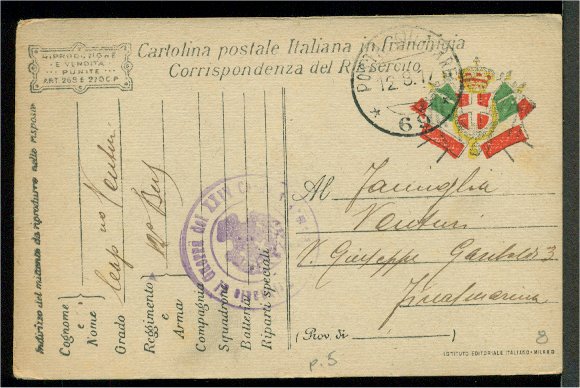 RIPRODUZIONE
E VENDITA
PUNITE
ART. 268 E 270 C.P
Cartolina postale Italiana in franchigia
Corrispondenza del R. Esercito
POSTA MILITARE
12.8.17
* 62 *
Indirizzo del mittente da riprodurre nella risposta
Cognome
e
Nome
Venturi
Grado
Reggimento
e
Arma
Bers
Compagnia
Squadrone
Batteria
Riparti speciali
del XXIV
Al Famiglia
Venturi
V. Giuseppe Garibaldi 3
Finalmarina
(Prov. di
)
p. 5
8
ISTITUTO EDITORIALE ITALIANO - MILANO